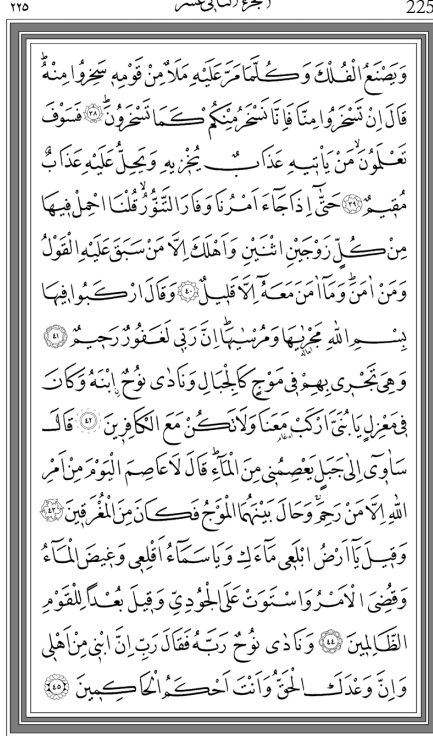 ٢٢٥ الجزء الثاني عشر 225
وَيَصْنَعُ الْفُلْكَ وَكُلَّمَا مَرَّ عَلَيْهِ مَلَأٌ مِنْ قَوْمِهِ سَخِرُوا مِنْهُۜ
قَالَ اِنْ تَسْخَرُوا مِنَّا فَاِنَّا نَسْخَرُ مِنْكُمْ كَمَا تَسْخَرُونَۜ ﴿٣٨﴾ فَسَوْفَ
تَعْلَمُونَۙ مَنْ يَأْتِيهِ عَذَابٌ يُخْزِيهِ وَيَحِلُّ عَلَيْهِ عَذَابٌ
مُقِيمٌ ﴿٣٩﴾ حَتّٰٓى اِذَا جَٓاءَ اَمْرُنَا وَفَارَ التَّنُّورُۙ قُلْنَا احْمِلْ فِيهَا
مِنْ كُلٍّ زَوْجَيْنِ اثْنَيْنِ وَاَهْلَكَ اِلَّا مَنْ سَبَقَ عَلَيْهِ الْقَوْلُ
وَمَنْ اٰمَنَۜ وَمَٓا اٰمَنَ مَعَهُٓ اِلَّا قَلِيلٌ ﴿٤٠﴾ وَقَالَ ارْكَبُوا فِيهَا
بِسْمِ اللّٰهِ مَجْرٰۭىهَا وَمُرْسٰيهَاۜ اِنَّ رَبِّي لَغَفُورٌ رَحِيمٌ ﴿٤١﴾
وَهِيَ تَجْرِي بِهِمْ فِي مَوْجٍ كَالْجِبَالِ وَنَادٰى نُوحٌۨ ابْنَهُ وَكَانَ
فِي مَعْزِلٍ يَا بُنَيَّ ارْكَبْ مَعَنَا وَلَا تَكُنْ مَعَ الْكَافِرِينَ ﴿٤٢﴾ قَالَ
سَاٰوِٓي اِلٰى جَبَلٍ يَعْصِمُنِي مِنَ الْمَٓاءِۜ قَالَ لَا عَاصِمَ الْيَوْمَ مِنْ اَمْرِ
اللّٰهِ اِلَّا مَنْ رَحِمَۚ وَحَالَ بَيْنَهُمَا الْمَوْجُ فَكَانَ مِنَ الْمُغْرَقِينَ ﴿٤٣﴾
وَقِيلَ يَٓا اَرْضُ ابْلَعِي مَٓاءَكِ وَيَا سَمَٓاءُ اَقْلِعِي وَغِيضَ الْمَٓاءُ
وَقُضِيَ الْاَمْرُ وَاسْتَوَتْ عَلَى الْجُودِيِّ وَقِيلَ بُعْدًا لِلْقَوْمِ
الظَّالِمِينَ ﴿٤٤﴾ وَنَادٰى نُوحٌ رَبَّهُ فَقَالَ رَبِّ اِنَّ ابْنِي مِنْ اَهْلِي
وَاِنَّ وَعْدَكَ الْحَقُّ وَاَنْتَ اَحْكَمُ الْحَاكِمِينَ ﴿٤٥﴾